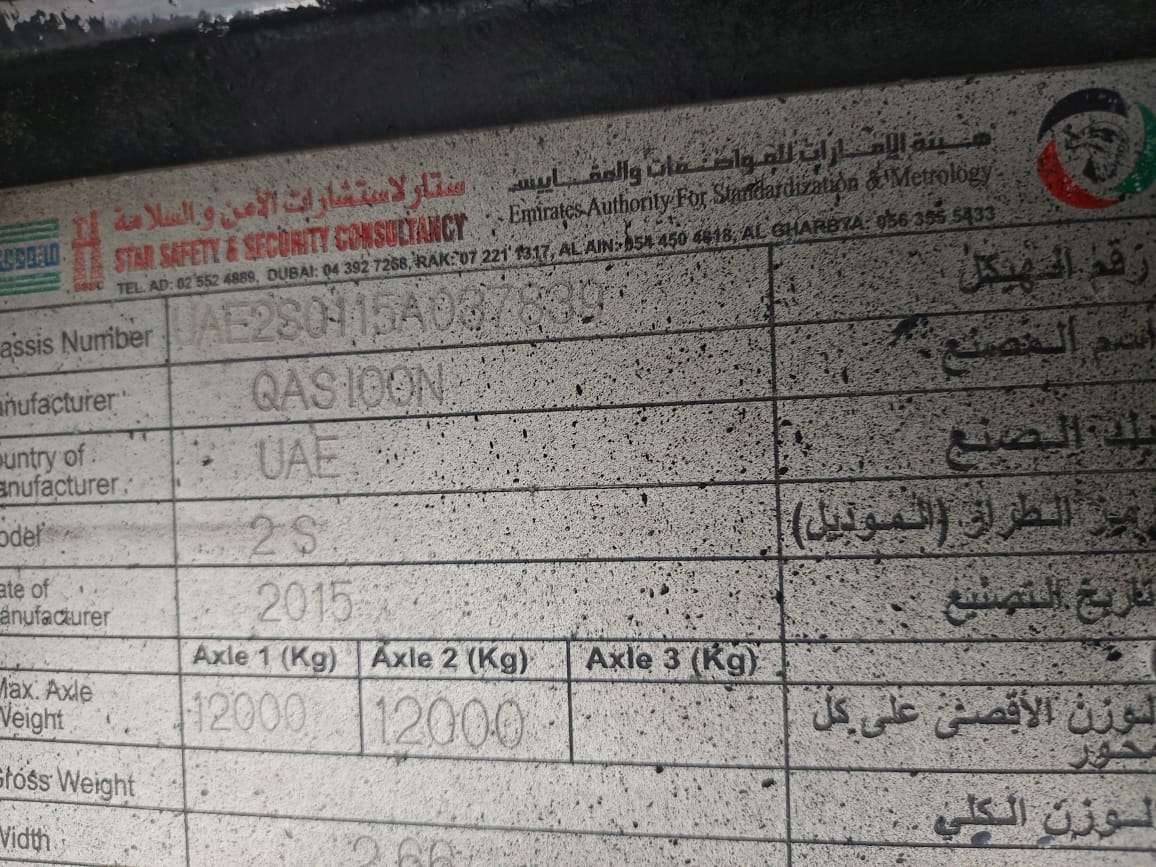 ستار لاستشارات الأمن و السلامة
STAR SAFETY & SECURITY CONSULTANCY
هيئة الإمارات للمواصفات والمقاييس
Emirates Authority For Standardization & Metrology
TEL. AD: 02 552 4889, DUBAI: 04 392 7268, RAK: 07 221 1317, AL AIN: 054 450 4818, AL GHARBYA: 056 355 5433
assis Number UAE2S0115A037839 رقم الهيكل
anufacturer QASIOON اسم المصنع
ountry of anufacturer UAE بلد الصنع
odel 2 S رمز الطراز (الموديل)
ate of anufacturer 2015 تاريخ التصنيع
Axle 1 (Kg) Axle 2 (Kg) Axle 3 (Kg)
Max. Axle Weight 12000 12000 لوزن الأقصى على كل محور
Gross Weight لوزن الكلي
Width 2.66